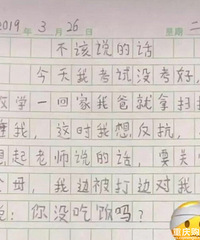 2019年 3月 26日 星期 二
不该说的话
今天我考试没考好,
放学一回家我爸就拿扫把
揍我,这时我想反抗,
想起老师说的话,要关
父母,我边被打边对我
说:你没吃饭吗?